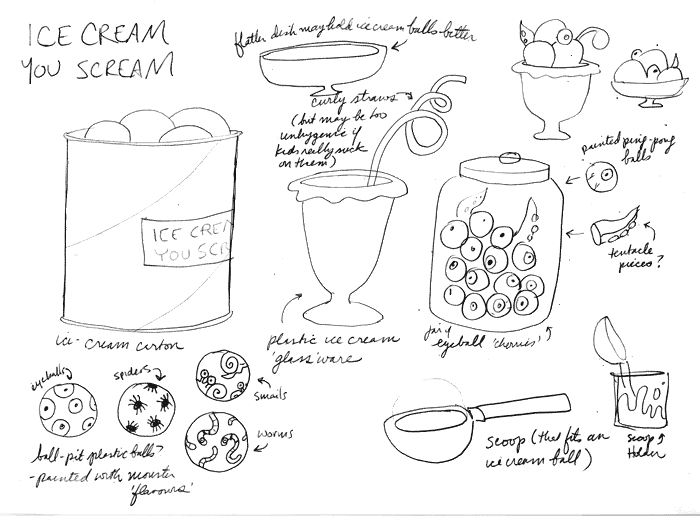 ICE CREAM
YOU SCREAM
flatter dish may hold ice cream balls better
curly straws
(but may be too
unhygenic if
kids really suck
on them)
painted ping-pong
balls
tentacle
pieces?
ICE CREA
YOU SCR
ice-cream carton
plastic ice cream
'glass'ware
jar of
eyeball 'cherries'
eyeballs
spiders
snails
worms
ball-pit plastic balls?
-painted with monster
'flavours'
scoop (that fits an
ice cream ball)
scoop
Holder